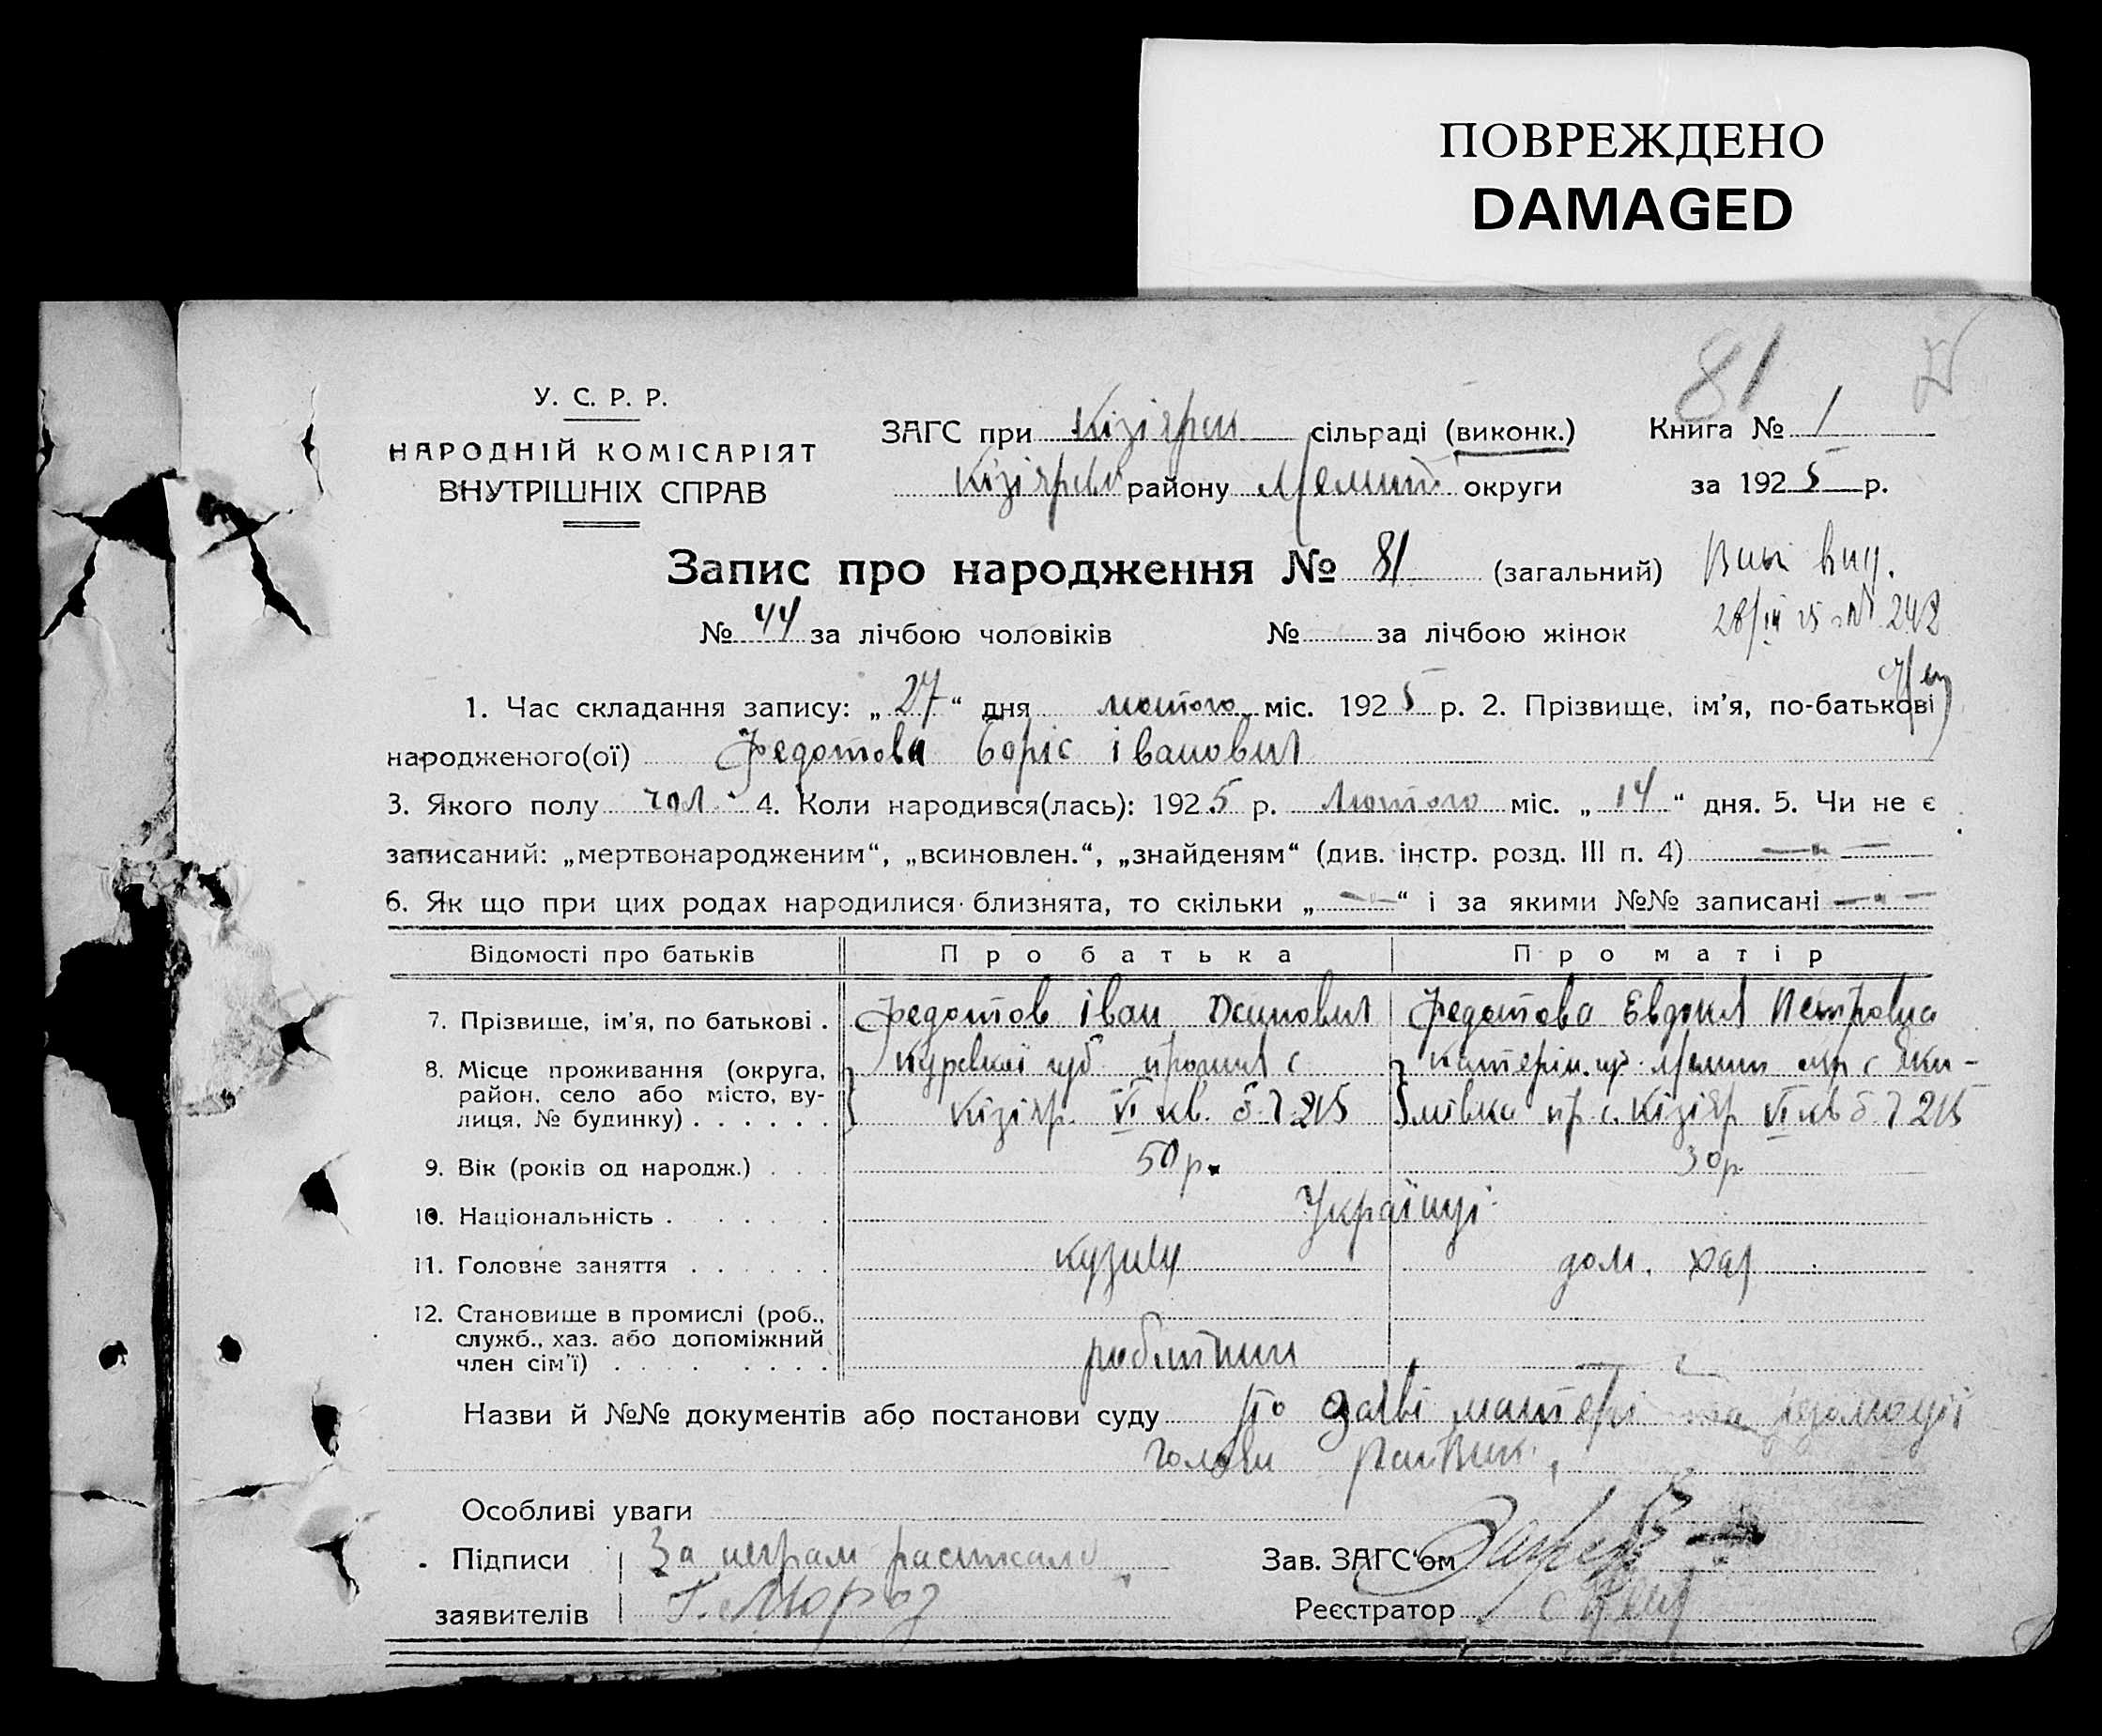 ПОВРЕЖДЕНО
DAMAGED
81
У. С. Р. Р.
НАРОДНІЙ КОМІСАРІЯТ
ВНУТРІШНІХ СПРАВ
ЗАГС при Кізіярск сільраді (виконк.) Книга № 1
Кізіярськ району Мелит округи за 1925 р.
Запис про народження № 81 (загальний)
28/ІІІ 25 № 242
№ 44 за лічбою чоловіків № за лічбою жінок
1. Час складання запису: „27“ дня лютого міс. 1925 р. 2. Прізвище, ім’я, по-батькові
народженого(ої) Федотова Боріс Івановил
3. Якого полу чол. 4. Коли народився(лась): 1925 р. Лютого міс. „14“ дня. 5. Чи не є
записаний: „мертвонародженим“, „всиновлен.“, „знайденям“ (див. інстр. розд. III п. 4)
6. Як що при цих родах народилися близнята, то скільки „ “ і за якими №№ записані
Відомості про батьків Про батька Про матір
7. Прізвище, ім’я, по батькові . Федотов Іван Федотова Евдокія Петровна
8. Місце проживання (округа, Курської губ прожив с Катерін. губ. Мелит окр с Яки-
район, село або місто, ву-
лиця, № будинку) . . . . . . Кізіяр. VI кв. б. ч 215 мівка пр с. Кізіяр VI кв б. ч 215
9. Вік (років од народж.) . . . 50 р. 30 р
10. Національність . . . . . . Українці
11. Головне заняття . . . . . . дом. хаз
12. Становище в промислі (роб.,
служб., хаз. або допоміжний
член сім’ї) . . . . . . . робітник
Назви й №№ документів або постанови суду По заяві матері та резолюції
голови РайВик.
Особливі уваги
Підписи За неграм
заявителів Г. Мороз
Зав. ЗАГС‘ом
Реєстратор